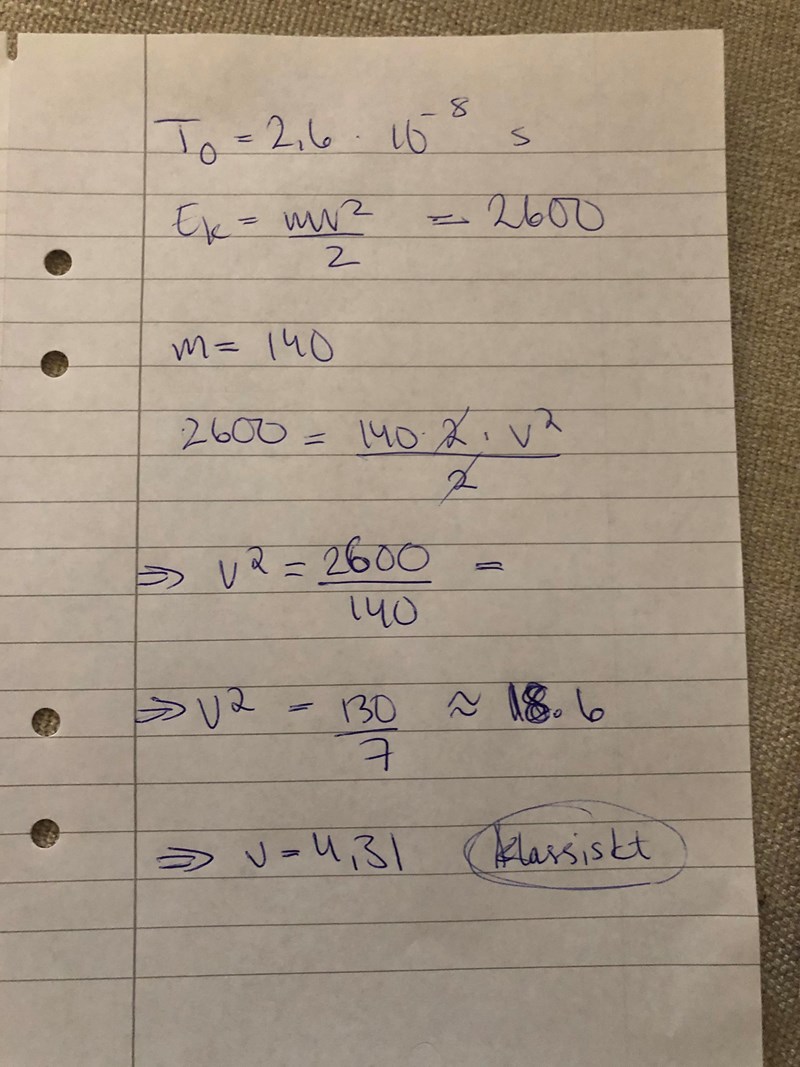 T₀ = 2,6 · 10⁻⁸ s
Eₖ = mv²/2 = 2600
m = 140
2600 = 140·2·v²/2
⇒ v² = 2600/140 =
⇒ v² = 130/7 ≈ 18.6
⇒ v = 4,31 klassiskt